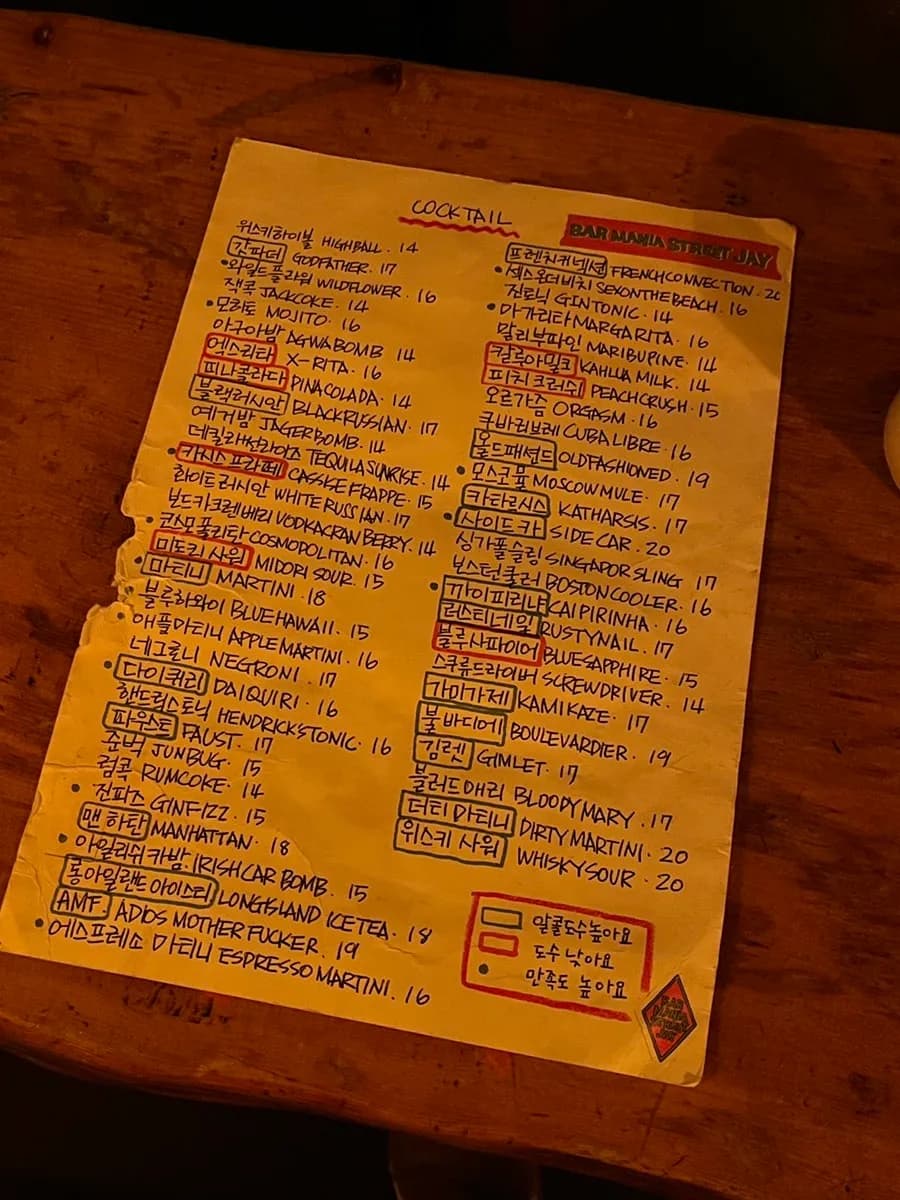 COCKTAIL
BAR MANIA STREET JAY
위스키하이볼 HIGHBALL. 14
갓파더 GODFATHER. 17
•와일드플라워 WILDFLOWER. 16
잭콕 JACKCOKE. 14
•모히토 MOJITO. 16
아구아밤 AGWABOMB 14
엑스리타 X-RITA. 16
피나콜라다 PINACOLADA. 14
블랙러시안 BLACKRUSSIAN. 17
예거밤 JAGERBOMB. 14
데킬라썬라이즈 TEQUILA SUNRISE. 14
•카시스프라페 CASSKE FRAPPE. 15
화이트러시안 WHITE RUSSIAN. 17
보드카크랜베리 VODKACRAN BERRY. 14
•코스모폴리탄 COSMOPOLITAN. 16
미도리 사워 MIDORI SOUR. 15
•마티니 MARTINI. 18
•블루하와이 BLUE HAWAII. 15
•애플마티니 APPLE MARTINI. 16
네그로니 NEGRONI. 17
•다이퀴리 DAIQUIRI. 16
핸드릭스토닉 HENDRICKSTONIC. 16
파우스트 FAUST. 17
준벅 JUNBUG. 15
럼콕 RUMCOKE. 14
•진피즈 GINFIZZ. 15
맨하탄 MANHATTAN. 18
•아일리쉬카밤 IRISH CAR BOMB. 15
롱아일랜드 아이스티 LONGISLAND ICETEA. 18
AMF. ADIOS MOTHER FUCKER. 19
•에스프레소 마티니 ESPRESSO MARTINI. 16
프렌치커넥션 FRENCHCONNECTION. 20
•섹스온더비치 SEXONTHEBEACH. 16
진토닉 GINTONIC. 14
•마가리타 MARGARITA. 16
말리부파인 MARIBUPINE. 14
칼루아밀크 KAHLUA MILK. 14
피치크러쉬 PEACHCRUSH. 15
오르가즘 ORGASM. 16
쿠바리브레 CUBALIBRE. 16
올드패션드 OLDFASHIONED. 19
•모스코뮬 MOSCOWMULE. 17
카타르시스 KATHARSIS. 17
•사이드카 SIDECAR. 20
싱가폴슬링 SINGADORSLING 17
보스턴쿨러 BOSTONCOOLER. 16
•까이피리냐 CAIPIRINHA. 16
러스티네일 RUSTYNAIL. 17
블루사파이어 BLUESAPPHIRE. 15
스쿠류드라이버 SCREWDRIVER. 14
가미가제 KAMIKAZE. 17
불바디에 BOULEVARDIER. 19
김렛 GIMLET. 17
블러드매리 BLOODY MARY. 17
더티마티니 DIRTY MARTINI. 20
위스키 사워 WHISKYSOUR. 20
알콜도수높아요
도수 낮아요
• 만족도 높아요
BAR MANIA STREET JAY